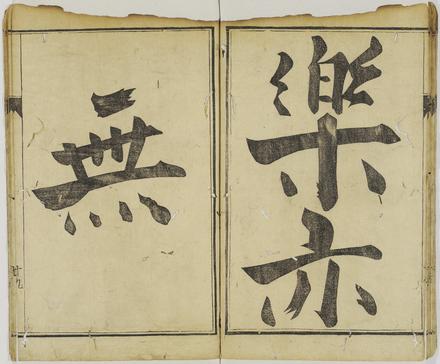 樂亦
無
廿九